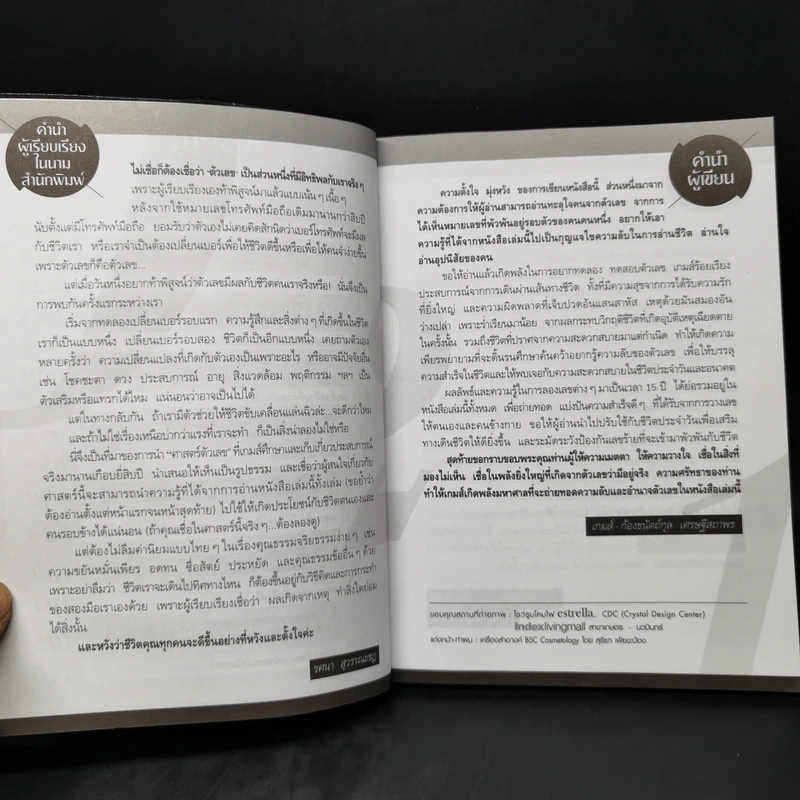 คำนำ
ผู้เรียบเรียง
ในนาม
สำนักพิมพ์
ไม่เชื่อก็ต้องเชื่อว่า "ตัวเลข" เป็นส่วนหนึ่งที่มีอิทธิพลกับเราจริง ๆ
เพราะผู้เรียบเรียงเองท้าพิสูจน์มาแล้วแบบเน้น ๆ เนื้อ ๆ
หลังจากใช้หมายเลขโทรศัพท์มือถือเดิมมานานกว่าสิบปี
นับตั้งแต่มีโทรศัพท์มือถือ ยอมรับว่าตัวเองไม่เคยคิดสักนิดว่าเบอร์โทรศัพท์จะมีผล
กับชีวิตเรา หรือเราจำเป็นต้องเปลี่ยนเบอร์เพื่อให้ชีวิตดีขึ้นหรือเพื่อให้คนจำง่ายขึ้น
เพราะตัวเลขก็คือตัวเลข...
แต่เมื่อวันหนึ่งอยากท้าพิสูจน์ว่าตัวเลขมีผลกับชีวิตคนเราจริงหรือ! นั่นจึงเป็น
การพบกันครั้งแรกระหว่างเรา
เริ่มจากทดลองเปลี่ยนเบอร์รอบแรก ความรู้สึกและสิ่งต่าง ๆ ที่เกิดขึ้นในชีวิต
เราก็เป็นแบบหนึ่ง เปลี่ยนเบอร์รอบสอง ชีวิตก็เป็นอีกแบบหนึ่ง เคยถามตัวเอง
หลายครั้งว่า ความเปลี่ยนแปลงที่เกิดกับตัวเองเป็นเพราะอะไร หรืออาจมีปัจจัยอื่น
เช่น โชคชะตา ดวง ประสบการณ์ อายุ สิ่งแวดล้อม พฤติกรรม ฯลฯ เป็น
ตัวเสริมหรือแทรกได้ไหม แน่นอนว่าอาจเป็นไปได้
แต่ในทางกลับกัน ถ้าเรามีตัวช่วยให้ชีวิตขับเคลื่อนแล่นฉิวล่ะ...จะดีกว่าไหม
และถ้าไม่ใช่เรื่องเหนือบ่ากว่าแรงที่เราจะทำ ก็เป็นสิ่งน่าลองไม่ใช่หรือ
นี่จึงเป็นที่มาของการนำ "ศาสตร์ตัวเลข" ที่เกมส์ศึกษาและเก็บเกี่ยวประสบการณ์
จริงมานานเกือบยี่สิบปี นำเสนอให้เห็นเป็นรูปธรรม และเชื่อว่าผู้สนใจเกี่ยวกับ
ศาสตร์นี้จะสามารถนำความรู้ที่ได้จากการอ่านหนังสือเล่มนี้ทั้งเล่ม (ขอย้ำว่า
ต้องอ่านตั้งแต่หน้าแรกจนหน้าสุดท้าย) ไปใช้ให้เกิดประโยชน์กับชีวิตตนเองและ
คนรอบข้างได้แน่นอน (ถ้าคุณเชื่อในศาสตร์นี้จริง ๆ...ต้องลองดู)
แต่ต้องไม่ลืมค่านิยมแบบไทย ๆ ในเรื่องคุณธรรมจริยธรรมง่าย ๆ เช่น
ความขยันหมั่นเพียร อดทน ซื่อสัตย์ ประหยัด และคุณธรรมข้ออื่น ๆ ด้วย
เพราะอย่าลืมว่า ชีวิตเราจะเดินไปทิศทางไหน ก็ต้องขึ้นอยู่กับวิธีคิดและการกระทำ
ของสองมือเราเองด้วย เพราะผู้เรียบเรียงเชื่อว่า ผลเกิดจากเหตุ ทำสิ่งใดย่อม
ได้สิ่งนั้น
และหวังว่าชีวิตคุณทุกคนจะดีขึ้นอย่างที่หวังและตั้งใจค่ะ
รศนา สุวรรณะชฎ
คำนำ
ผู้เขียน
ความตั้งใจ มุ่งหวัง ของการเขียนหนังสือนี้ ส่วนหนึ่งมาจาก
ความต้องการให้ผู้อ่านสามารถอ่านทะลุใจคนจากตัวเลข จากการ
ได้เห็นหมายเลขที่พัวพันอยู่รอบตัวของคนคนหนึ่ง อยากให้เอา
ความรู้ที่ได้จากหนังสือเล่มนี้ไปเป็นกุญแจไขความลับในการอ่านชีวิต อ่านใจ
อ่านอุปนิสัยของคน
ขอให้อ่านแล้วเกิดพลังในการอยากทดลอง ทดสอบตัวเลข เกมส์ร้อยเรียง
ประสบการณ์จากการเดินผ่านเส้นทางชีวิต ทั้งที่มีความสุขจากการได้รับความรัก
ที่ยิ่งใหญ่ และความผิดพลาดที่เจ็บปวดอันแสนสาหัส เหตุด้วยมันสมองอัน
ว่างเปล่า เพราะร่ำเรียนมาน้อย จากผลกระทบวิกฤติชีวิตที่เกิดอุบัติเหตุเฉียดตาย
ในครั้งนั้น รวมถึงชีวิตที่ปราศจากความสะดวกสบายมาแต่กำเนิด ทำให้เกิดความ
เพียรพยายามที่จะดั้นรนศึกษาค้นคว้าอยากรู้ความลับของตัวเลข เพื่อให้บรรลุ
ความสำเร็จในชีวิตและให้พบเจอกับความสะดวกสบายในชีวิตประจำวันและอนาคต
ผลลัพธ์และความรู้ในการลองเลขต่าง ๆ มาเป็นเวลา 15 ปี ได้ย่อรวมอยู่ใน
หนังสือเล่มนี้ทั้งหมด เพื่อถ่ายทอด แบ่งปันความสำเร็จดี ๆ ที่ได้รับจากการวางเลข
ให้ตนเองและคนข้างกาย ขอให้ผู้อ่านนำไปปรับใช้กับชีวิตประจำวันเพื่อเสริม
ทางเดินชีวิตให้ดียิ่งขึ้น และระมัดระวังป้องกันเลขร้ายที่จะเข้ามาพัวพันกับชีวิต
สุดท้ายขอกราบขอบพระคุณท่านผู้ให้ความเมตตา ให้ความวางใจ เชื่อในสิ่งที่
มองไม่เห็น เชื่อในพลังยิ่งใหญ่ที่เกิดจากตัวเลขว่ามีอยู่จริง ความศรัทธาของท่าน
ทำให้เกมส์เกิดพลังมหาศาลที่จะถ่ายทอดความลับและอำนาจตัวเลขในหนังสือเล่มนี้
เกมส์-ก้องธนัตถ์กูล เศรษฐีสถาพร
ขอบคุณสถานที่ถ่ายภาพ : โชว์รูมโคมไฟ estrella, CDC (Crystal Design Center)
indexlivingmall สาขาเกษตร - นวมินทร์
แต่งหน้า-ทำผม : เครื่องสำอางค์ BSC Cosmetology โดย สุริยา เพียยะป้อง